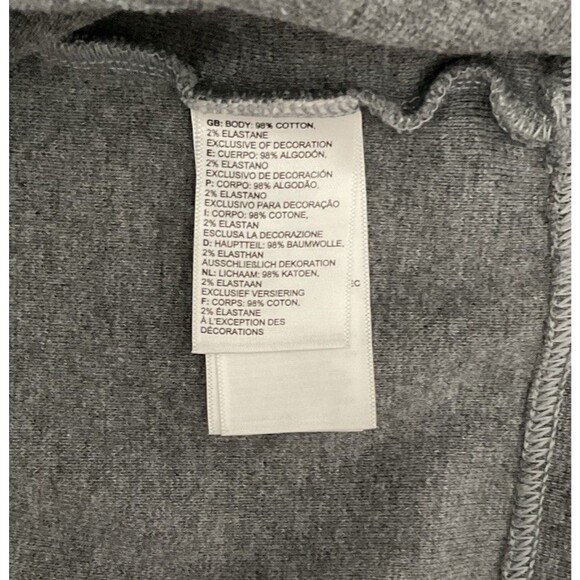 GB: BODY: 98% COTTON,
2% ELASTANE
EXCLUSIVE OF DECORATION
E: CUERPO: 98% ALGODÓN,
2% ELASTANO
EXCLUSIVO DE DECORACIÓN
P: CORPO: 98% ALGODÃO,
2% ELASTANO
EXCLUSIVO PARA DECORAÇÃO
I: CORPO: 98% COTONE,
2% ELASTAN
ESCLUSA LA DECORAZIONE
D: HAUPTTEIL: 98% BAUMWOLLE,
2% ELASTHAN
AUSSCHLIEßLICH DEKORATION
NL: LICHAAM: 98% KATOEN,
2% ELASTAAN
EXCLUSIEF VERSIERING
F: CORPS: 98% COTON,
2% ÉLASTANE
À L'EXCEPTION DES
DÉCORATIONS